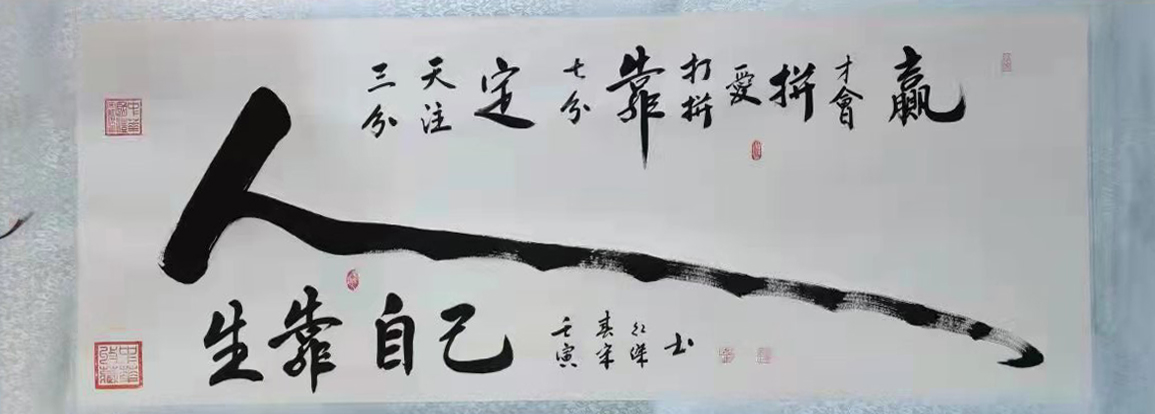 三分天注定七分靠打拼愛拼才會贏
人
生靠自己
壬寅春宋红洋书